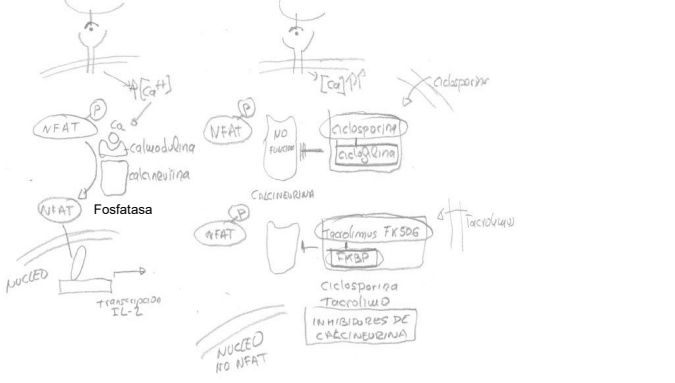 ↑[Ca++]
P
NFAT
Ca
calmodulina
calcineurina
NFAT
Fosfatasa
NUCLEO
Transcripcion
IL-2
[Ca]↑↑
Ciclosporina
P
NFAT
NO
FUNCION
Ciclosporina
Ciclofilina
CALCINEURINA
P
NFAT
Tacrolimus FK506
FKBP
Tacrolimus
Ciclosporina
Tacrolimo
INHIBIDORES DE
CALCINEURINA
NUCLEO
NO NFAT